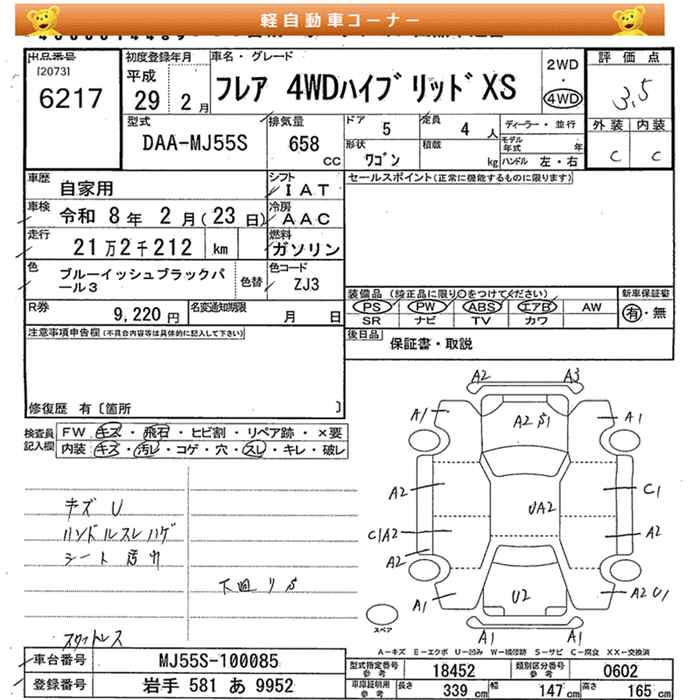 軽自動車コーナー
出品番号
[2073]
6217
初度登録年月
平成
29年 2月
車名・グレード
フレア 4WDハイブリッドXS
2WD
・
4WD
評価点
3.5
外装 内装
C C
型式
DAA-MJ55S
排気量
658
CC
ドア 5
定員 4 人
形状 ワゴン
積載 kg
ディーラー・並行
モデル年式 年
ハンドル 左・右
車歴 自家用
シフト IAT
車検 令和 8年 2月(23日)
冷房 AAC
走行 21万2千212 km
燃料 ガソリン
色 ブルーイッシュブラックパール3
色替
色コード ZJ3
R券 9,220円
名変通知期限 月 日
セールスポイント(正常に機能するものに限ります)
装備品(純正品に限り○をつけてください)
PS PW ABS エアB AW
SR ナビ TV カワ
新車保証書
有・無
後日品 保証書・取説
注意事項申告欄(不具合内容等は具体的に記入して下さい)
修復歴 有〔箇所 〕
検査員記入欄
FW キズ・飛石・ヒビ割・リペア跡・×要
内装 キズ・汚レ・コゲ・穴・スレ・キレ・破レ
キズ U
ハンドルスレハゲ
シート 汚レ
下廻りS
スペアタイヤレス
A2 A3
A1 A2 S1 A1
A2 C1
UA2
C1A2 A2
A2
A1 U2 A2 U1
A1 A1
スペア
A-キズ E-エクボ U-凹み W-補修跡 S-サビ C-腐食 XX-交換済
車台番号 MJ55S-100085
登録番号 岩手 581 あ 9952
型式指定番号 参考 18452
類別区分番号 参考 0602
車庫証明用 参考 長さ 339 cm 幅 147 cm 高さ 165 cm